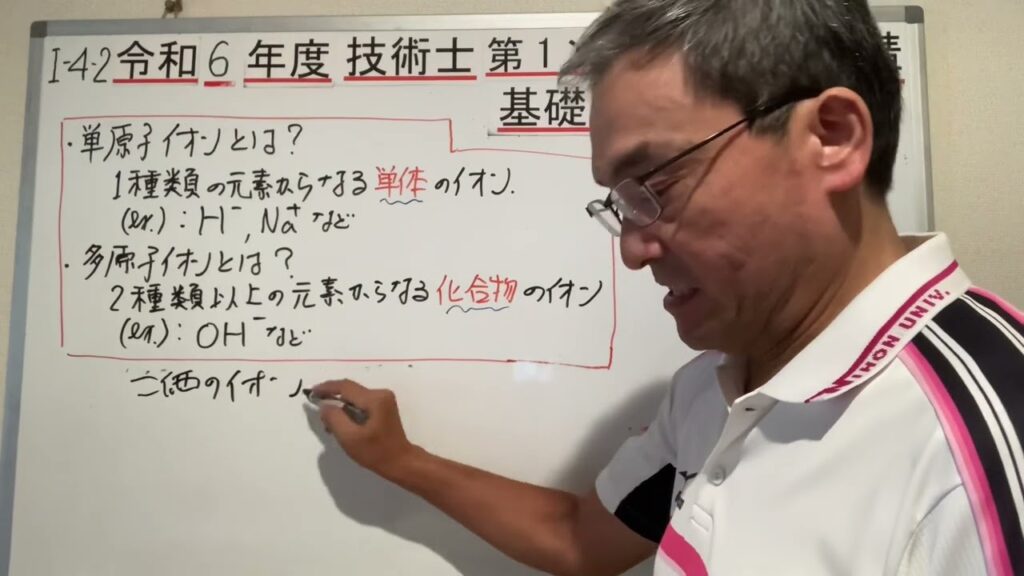 I-4-2 令和6年度 技術士 第1
基礎
・単原子イオンとは?
1種類の元素からなる単体のイオン.
(ex.): H⁻, Na⁺ など
・多原子イオンとは?
2種類以上の元素からなる化合物のイオン
(ex.): OH⁻ など
二価のイオン
NIHON UNIV.